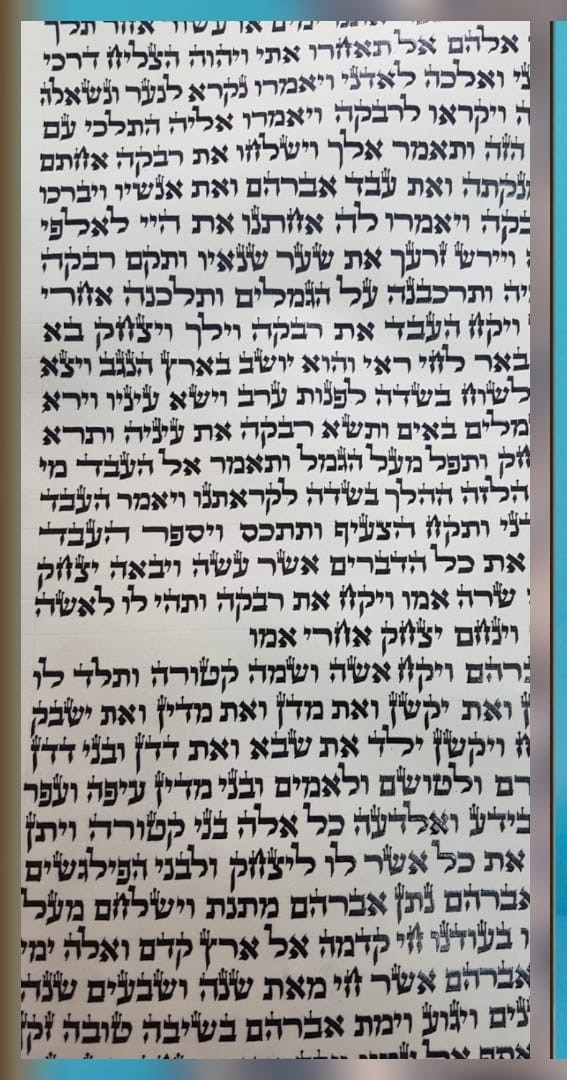 ימים או עשור אחר תלך
אלהם אל תאחרו אתי ויהוה הצליח דרכי
ואלכה לאדני ויאמרו נקרא לנער ונשאלה
ויקראו לרבקה ויאמרו אליה התלכי עם
הזה ותאמר אלך וישלחו את רבקה אחתם
מנקתה ואת עבד אברהם ואת אנשיו ויברכו
רבקה ויאמרו לה אחתנו את היי לאלפי
ויירש זרעך את שער שנאיו ותקם רבקה
יה ותרכבנה על הגמלים ותלכנה אחרי
ויקח העבד את רבקה וילך ויצחק בא
באר לחי ראי והוא יושב בארץ הנגב ויצא
לשוח בשדה לפנות ערב וישא עיניו וירא
מלים באים ותשא רבקה את עיניה ותרא
חק ותפל מעל הגמל ותאמר אל העבד מי
הלזה ההלך בשדה לקראתנו ויאמר העבד
דני ותקח הצעיף ותתכס ויספר העבד
את כל הדברים אשר עשה ויבאה יצחק
שרה אמו ויקח את רבקה ותהי לו לאשה
וינחם יצחק אחרי אמו
ברהם ויקח אשה ושמה קטורה ותלד לו
ואת יקשן ואת מדן ואת מדין ואת ישבק
ויקשן ילד את שבא ואת דדן ובני דדן
רם ולטושם ולאמים ובני מדין עיפה ועפר
בידע ואלדעה כל אלה בני קטורה ויתן
את כל אשר לו ליצחק ולבני הפילגשים
אברהם נתן אברהם מתנת וישלחם מעל
בעודנו חי קדמה אל ארץ קדם ואלה ימי
אברהם אשר חי מאת שנה ושבעים שנה
נים ויגוע וימת אברהם בשיבה טובה זקן